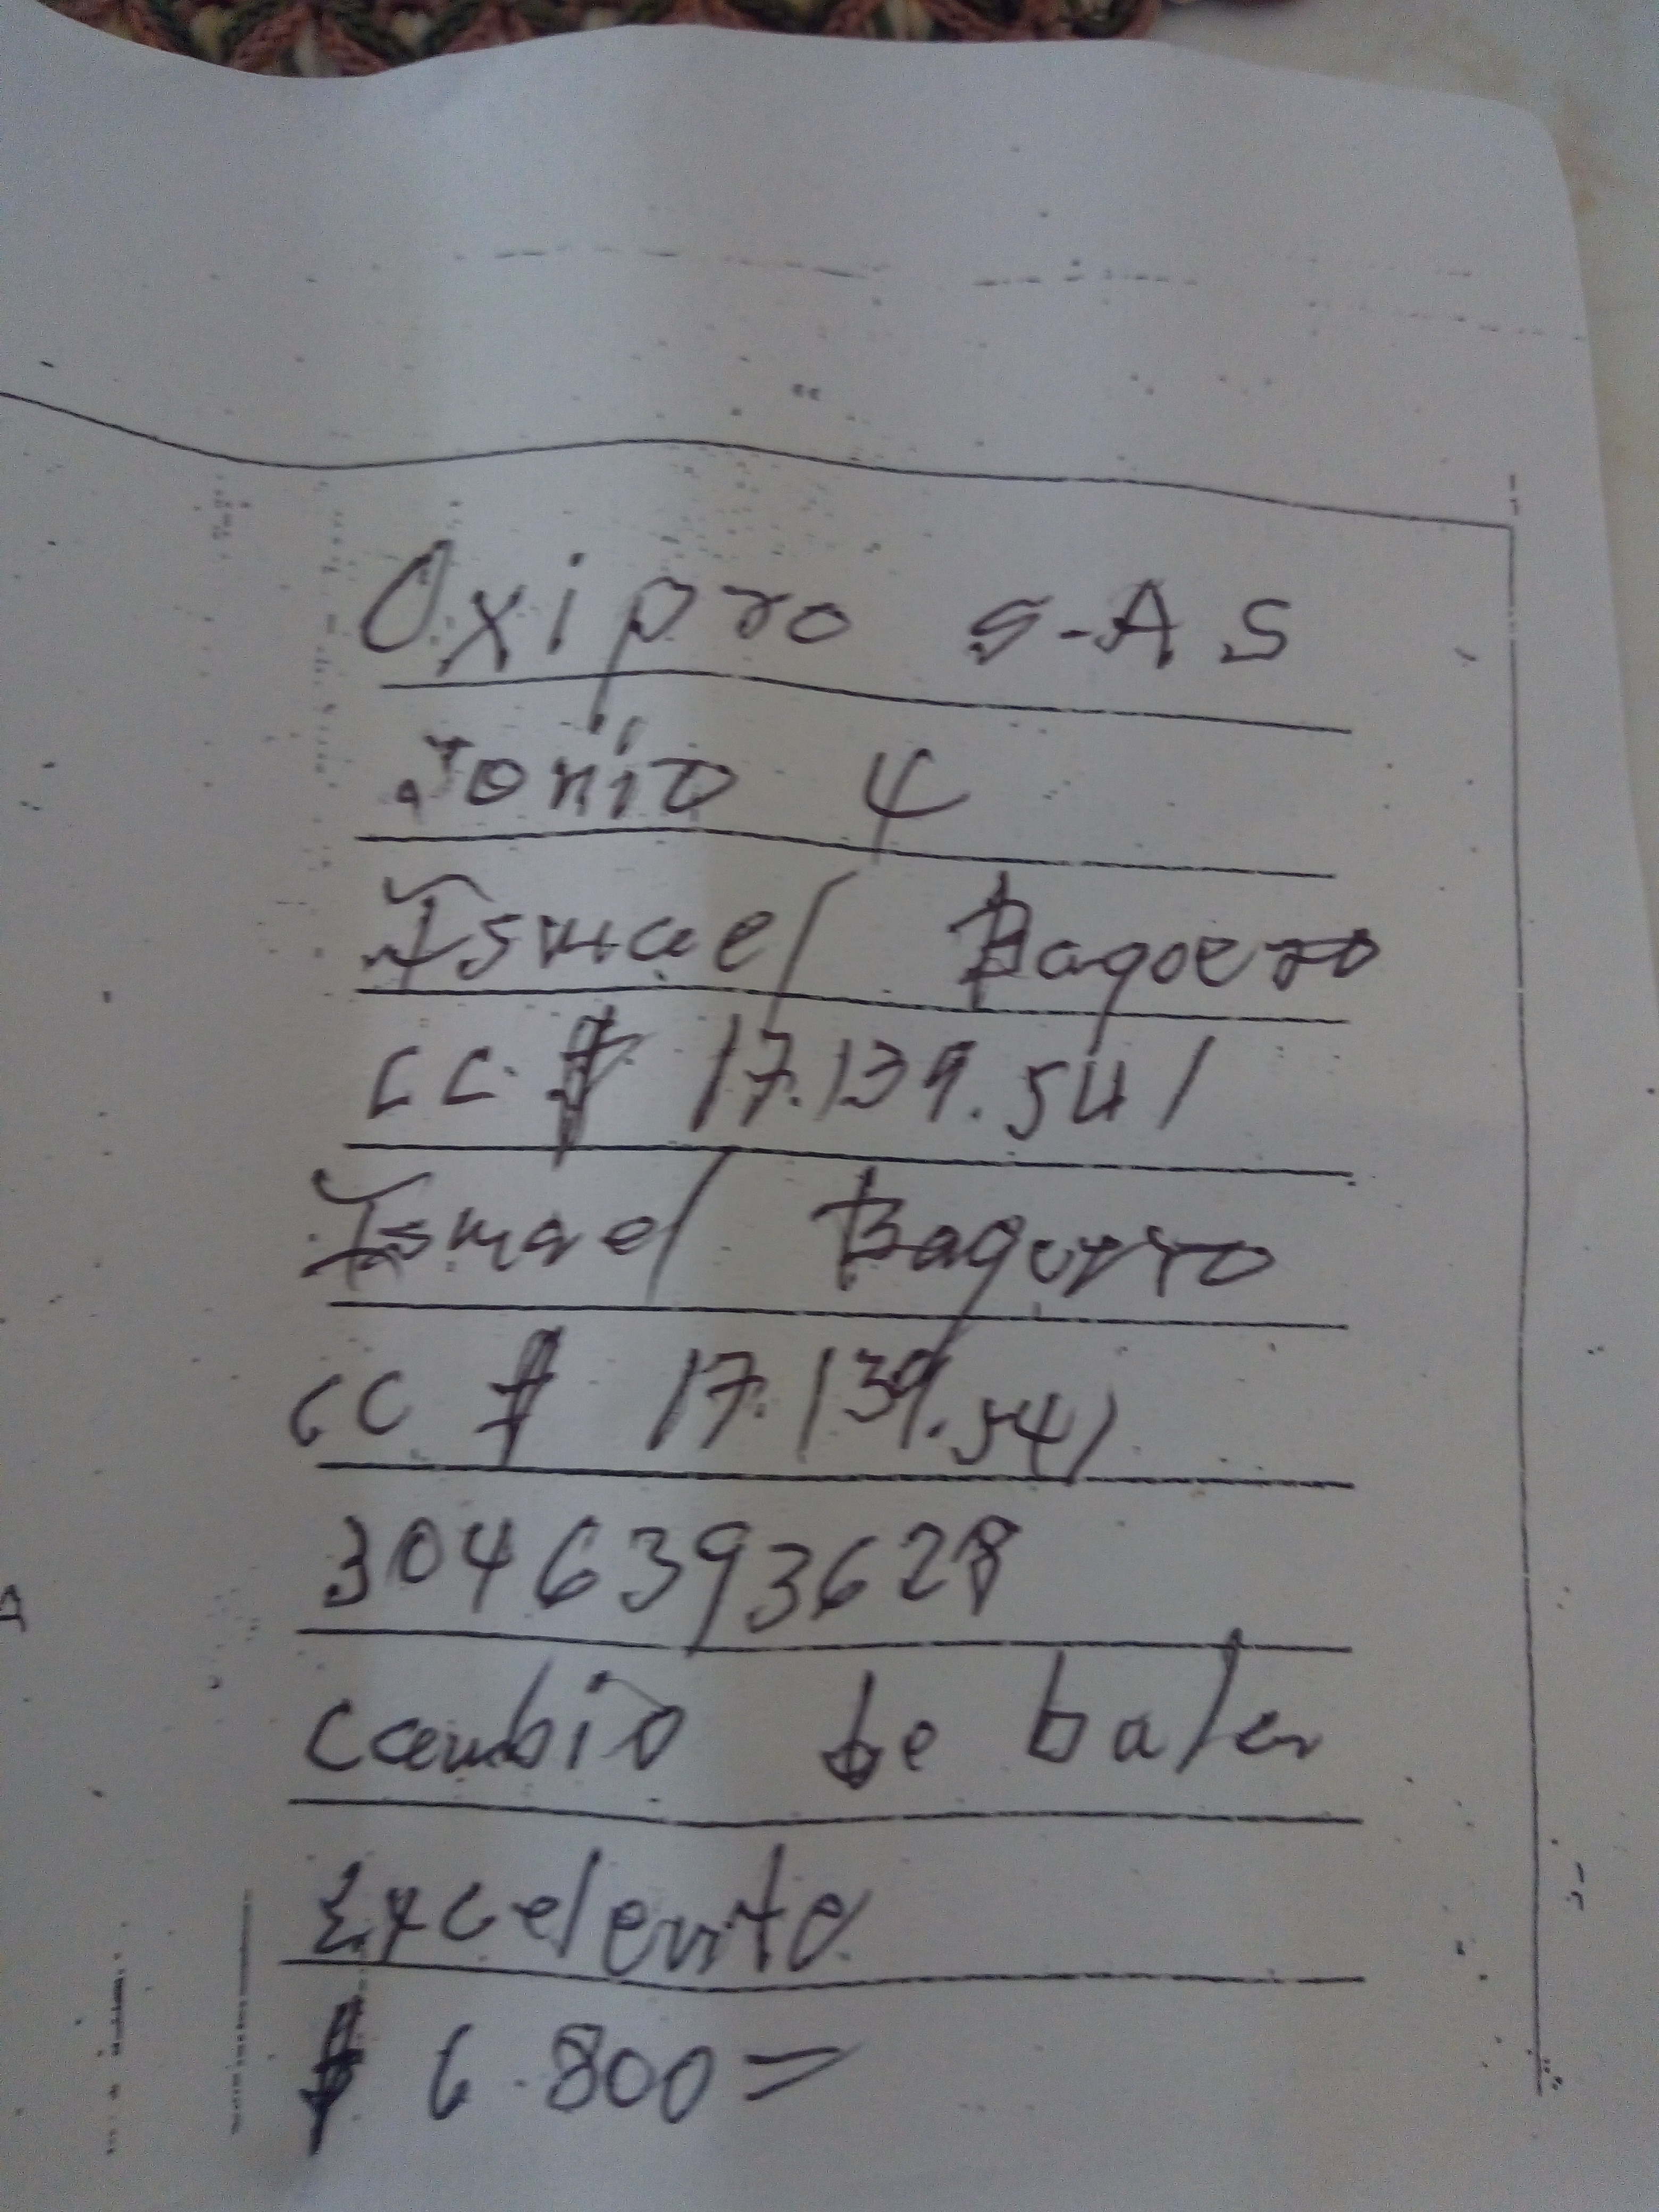 Oxipro S-AS
Jonio 4
Ismael Baqoero
CC. # 17.139.541
Ismael Baquero
CC # 17.139.541
3046393628
Cambio de bala
Excelente
$ 6.800=